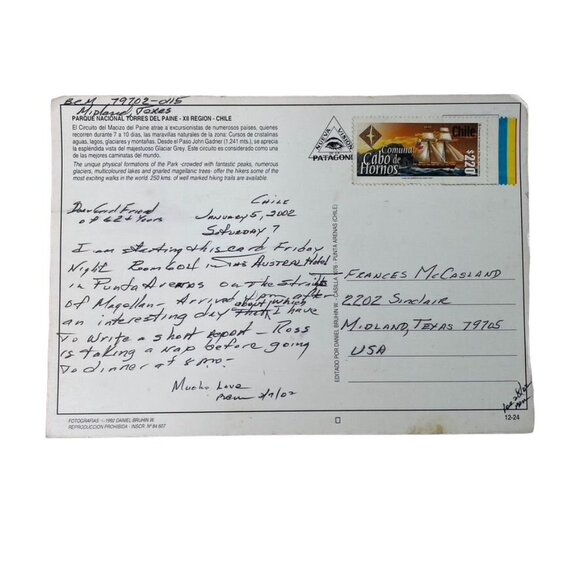 BCM 79702-0115
Midland, Texas
PARQUE NACIONAL TORRES DEL PAINE - XII REGION - CHILE
El Circuito del Macizo del Paine atrae a excursionistas de numerosos países, quienes
recorren durante 7 a 10 días, las maravillas naturales de la zona: Cursos de cristalinas
aguas, lagos, glaciares y montañas. Desde el Paso John Gadner (1.241 mts.), se
aprecia la espléndida vista del majestuoso Glaciar Grey. Este circuito es considerado como una
de las mejores caminatas del mundo.
The unique physical formations of the Park -crowded with fantastic peaks, numerous
glaciers, multicoloured lakes and gnarled magellanic trees- offer the hikers some of the
most exciting walks in the world. 250 kms. of well marked hiking trails are available.
NUEVA VISION
PATAGONI
Comuna
Cabo de
Hornos
Chile
$220
Dear Good Friend
of 62+ Years
CHILE
January 5, 2002
Saturday 7
I am starting this card Friday
Night Room in Hotel
in Punta Arenas on the Straits
of Magellan - Arrived
an interesting day about which I have
to write a short report - Ross
is taking a nap before going
to dinner at 8 pm -
Mucho Love
EDITADO POR DANIEL BRUHIN W. - CASILLA - PUNTA ARENAS (CHILE)
FRANCES McCASLAND
2202 SINCLAIR
MIDLAND, TEXAS 79705
USA
FOTOGRAFIAS - 1992 DANIEL BRUHIN W.
REPRODUCCION PROHIBIDA - INSCR. Nº 84.607
12-24